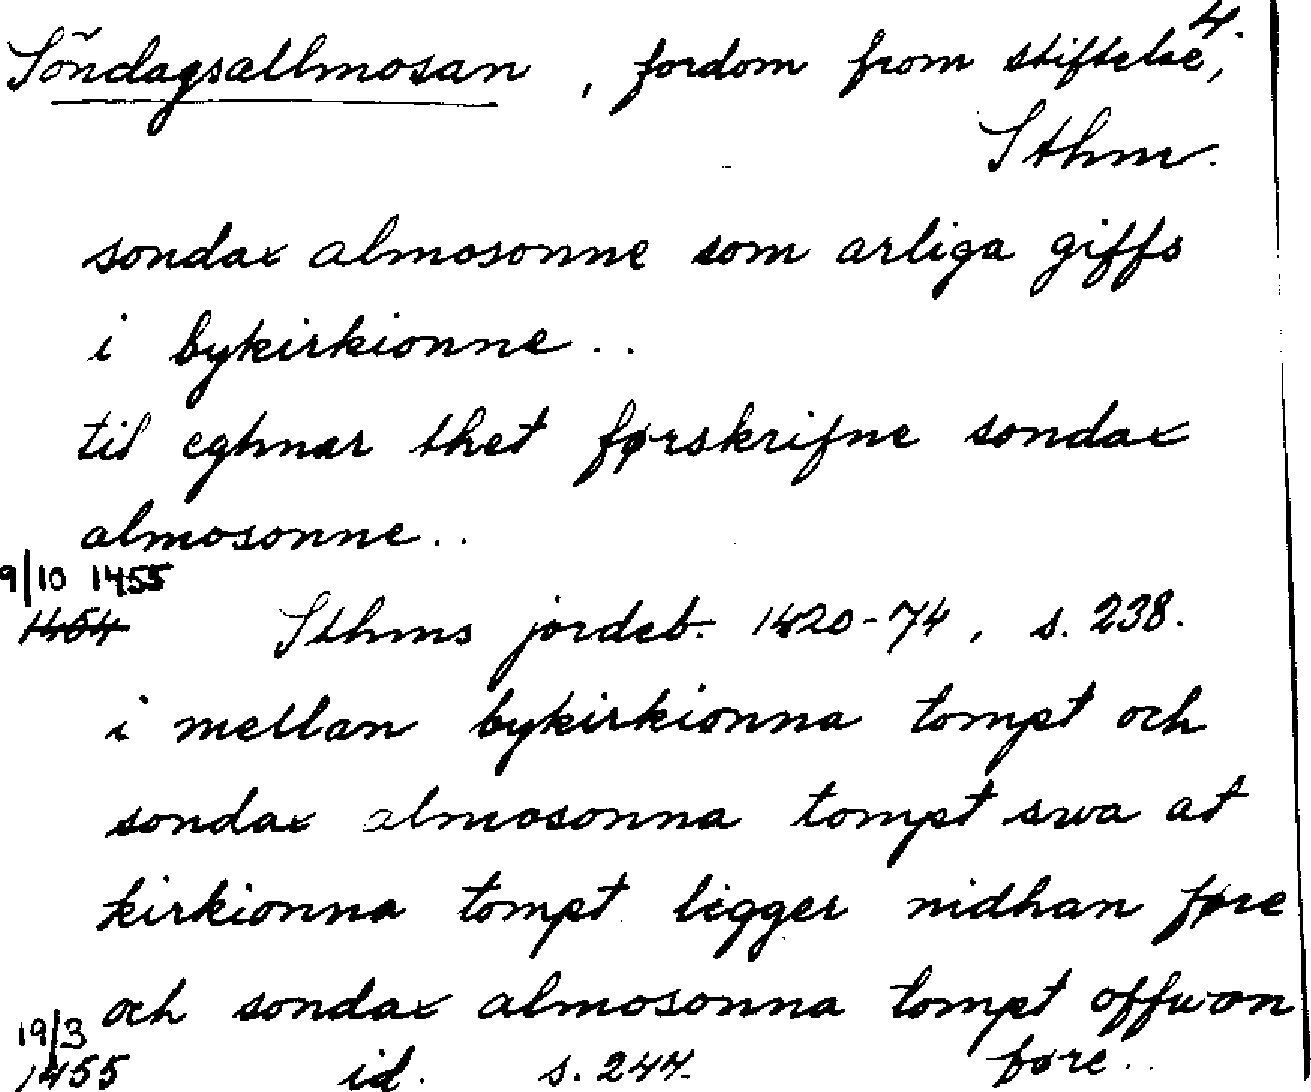 4.
Söndagsallmosan, fordom from stiftelse,
Sthm.
sondax almosonne som arliga giffs
i bykirkionne..
til eghnar thet førskrifne sondax
almosonne..
9/10 1455
1454 Sthms jordeb. 1420-74, s. 238.
i mellan bykirkionna tompt och
sondax almosonna tompt swa at
kirkionna tompt ligger nidhan føre
och sondax almosonna tompt offwan
19/3
1455 id. s. 244. føre..